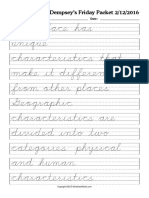 Dempsey's Friday Packet 2/12/2016
Date:
ace has
unique
characteristics that
make it different
from other places
Geographic
characteristics are
divided into two
categories: physical
and human
characteristics